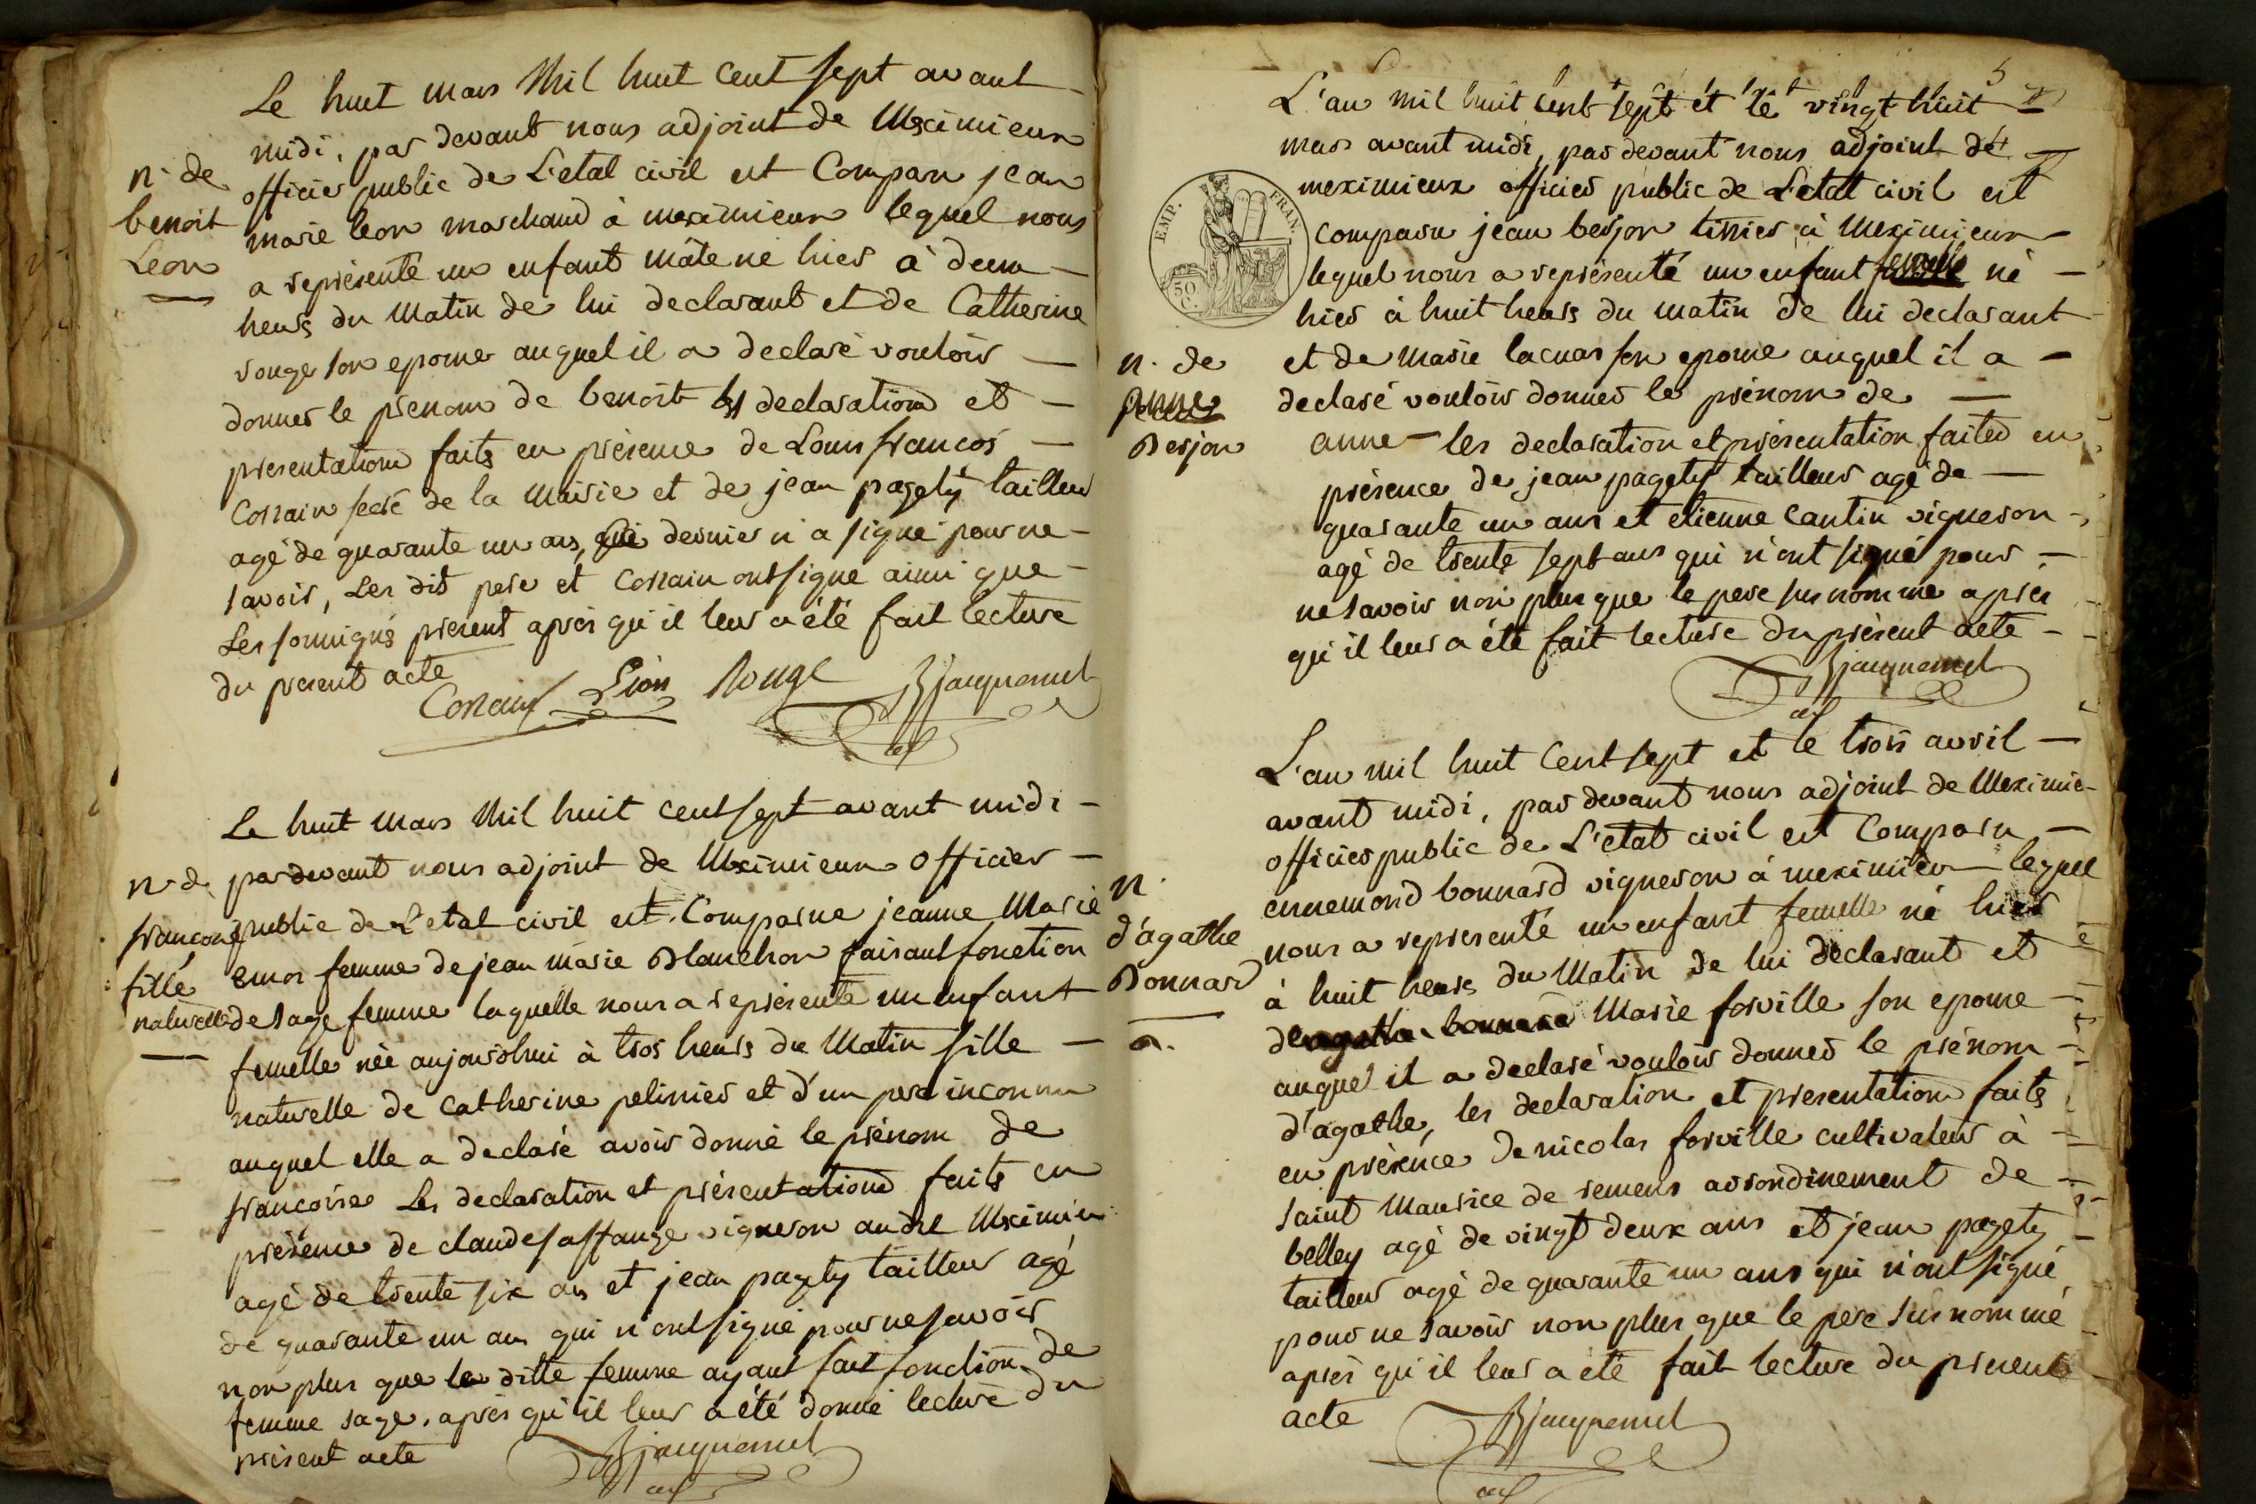 Le huit mars Mil huit cent sept avant
midi, par devant nous adjoint de Meximieux
officier public de L'etat civil est Comparu jean
marie leon marchand à meximieux lequel nous
a représenté un enfant mâle né hier à deux
heurs du Matin de lui declarant et de Catherine
rouge son epouse auquel il a declaré vouloir
donner le prenom de benoit les declaration et
presentation faits en présence de Louis francois
Corrain secré de la Mairie et de jean pagety tailleur
agé de quarante un ans, qui dernier n'a signé pour ne
savoir, Les dit pere et Corrain ont signé ainsi que
Les soussignés present après qu'il leur a été fait lecture
du present acte
Corrain Léon Rouge Bjacquemet
adj
n. de
benoit
Leon
Le huit mars Mil huit cent sept avant midi
par devant nous adjoint de Meximieux officier
public de L'etat civil est Comparue jeanne Marie
femme de jean marie Blanchon faisant fonction
de sage femme laquelle nous a représenté un enfant
femelle née aujourdhui à trois heurs du Matin fille
naturelle de Catherine pelinier et d'un pere inconnu
auquel elle a declaré avoir donné le prénom de
francoise Les declaration et présentation faits en
présence de claude vigneron audit Meximieu
agé de trente six ans et jean pagety tailleur agé
de quarante un ans qui n'ont signé pour ne savoir
non plus que la ditte femme ayant fait fonction de
femme sage, après qu'il leur a été donné lecture du
présent acte
Bjacquemet
adj
n. de
francoise
fille
naturelle
5
L'an mil huit cent sept et le vingt huit
mars avant midi, par devant nous adjoint de
meximieux officier public de L'etat civil est
comparu jean berjon tissier à Meximieux
lequel nous a représenté un enfant femelle né
hier à huit heurs du matin de lui declarant
et de Marie lacuas son epouse auquel il a
declaré vouloir donner le prénom de
anne les declaration et présentation faites en
présence de jean pagety tailleur agé de
quarante un ans et etienne Cantin vigneron
agé de trente sept ans qui n'ont signé pour
ne savoir non plus que le pere surnommé après
qu'il leur a été fait lecture du présent acte
Bjacquemet
adj
EMP. FRAN.
50
C.
n. de
anne
Berjon
L'an mil huit cent sept et le trois avril
avant midi, par devant nous adjoint de Meximie
officier public de L'etat civil est Comparu
ennemond bonnard vigneron à meximieu lequel
nous a representé un enfant femelle né hier
à huit heurs du Matin de lui declarant et
de agatha bonnard Marie forville son epouse
auquel il a declaré vouloir donner le prénom
d'agathe, les declaration et presentation faits
en présence de nicolas forville cultivateur à
saint Maurice de remens arrondinement de
belley agé de vingt deux ans et jean pagety
tailleur agé de quarante un ans qui n'ont signé
pour ne savoir non plus que le pere surnommé
après qu'il leur a été fait lecture du present
acte
Bjacquemet
adj
n.
d'agathe
Bonnard